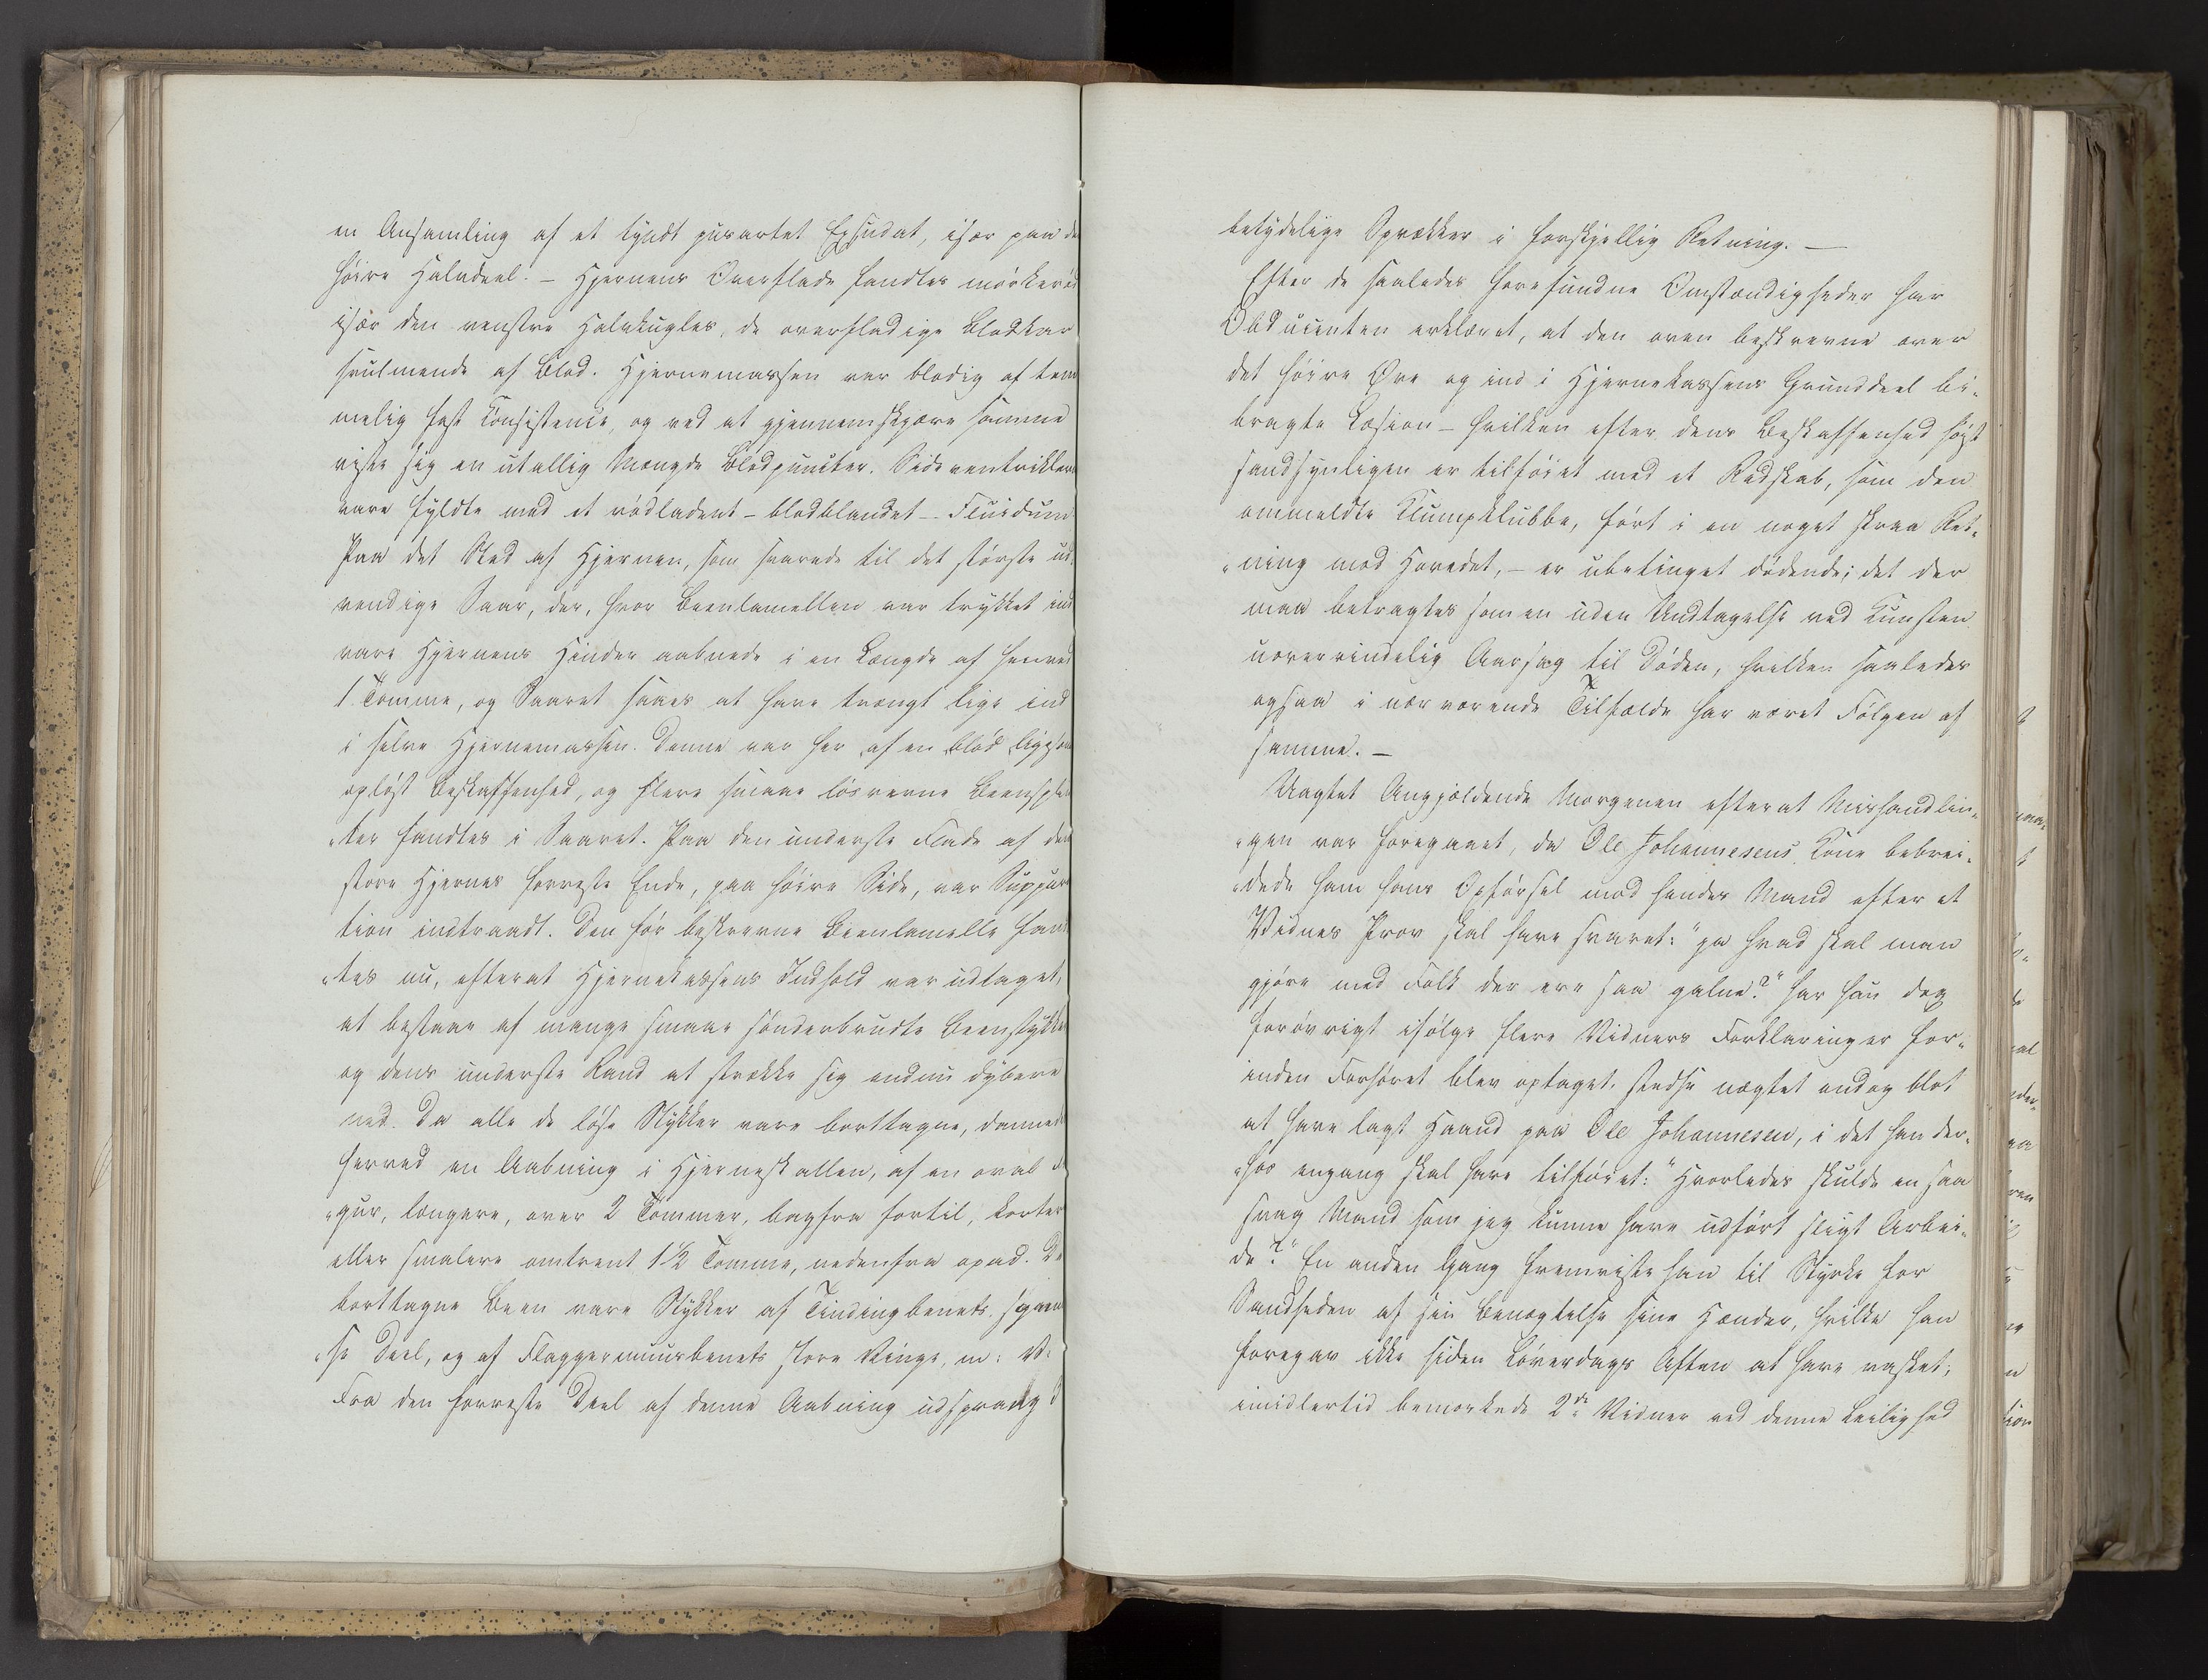 en Ansamling af et tyndt pusartet Exsudat, især paa de
høire Halvdeel. – Hjernens Overflade fandtes mørkerød
især den venstre Halvkugles, de overfladige Blodkar
svulmende af Blod. Hjernemassen var blodig af tem
melig fast Consistence, og ved at gjennemskjære samme
viste sig en utallig Mængde Blodpuncter. Sideventriklern
vare fyldte med et rødladent – blodblandet – Fluidum
Paa det Sted af Hjernen, som svarede til det største ud,
vendige Saar, der, hvor Beenlamellen var trykket ind
vare Hjernens Hinder aabnede i en Længde af henved
1 Tomme, og Saaret saaes at have trængt lige ind
i selve Hjernemassen. Denne var her af en blød ligesom
opløst Beskaffenhed, og flere smaae løsrevne Beensplin
„ter fandtes i Saaret. Paa den underste Flade af den
store Hjernes forreste Ende, paa høire Side, var Suppura
tion indtraadt. Den før beskrevne Beenlamelle fand
„tes nu, efterat Hjernekassens Indhold var udtaget,
at bestaae af mange smaae sønderbrudte Beenstykker
og dens underste Rand at strække sig endnu dybere
ned. Da alle de løse Stykker vare borttagne, dannede
herved en Aabning i Hjerneskallen, af en oval Fi
„gur, længere, over 2 Tommer, bagfra fortil, korter
eller smalere omtrent 1½ Tomme, nedenfra opad. De
borttagne Been vare Stykker af Tindingbenets squamø
„se Deel, og af Flaggermuusbenets store Vinge, m: V:
Fra den forreste Deel af denne Aabning udsprang
betydelige Sprækker i forskjellig Retning. –
Efter de saaledes forefundne Omstændigheder har
Obducenten erklæret, at den oven beskrevne over
det høire Øre og ind i Hjernekassens Grunddeel bi„
bragte Læsion – hvilken efter dens Beskaffenhed høist
sandsynligen er tilføiet med et Redskab, som den
ommeldte Klumpklubbe, ført i en noget skraa Ret„
„ning mod Hovedet, – er ubetinget dødende; det der
maa betragtes som en uden Undtagelse ved Kunsten
uovervindelig Aarsag til Døden, hvilken saaledes
ogsaa i nærværende Tilfælde har været Følgen af
samme. –
Uagtet Angjældende Morgenen efterat Mishandlin„
„gen var foregaaet, da Ole Johannesens Kone bebrei„
„dede ham hans Opførsel mod hendes Mand efter et
Vidnes Prov skal have svaret: "ja hvad skal man
gjøre med Folk der ere saa galne?" har han dog
forøvrigt ifølge flere Vidners Forklaringer for„
inden Forhøret blev optaget, stedse nægtet endog blot
at have lagt Haand paa Ole Johannesen, i det han der„
„hos engang skal have tilføiet: "Hvorledes skulde en saa
svag Mand som jeg kunne have udført sligt Arbei„
de?" En anden Gang fremviste han til Styrke for
Sandheden af sin Benægtelse sine Hænder, hvilke han
foregav ikke siden Løverdags Aften at have vasket;
imidlertid bemærkede 2de Vidner ved denne Leilighed